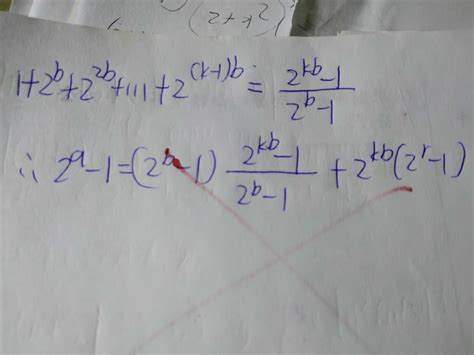 1+2^b+2^{2b}+...+2^{(k-1)b} = \frac{2^{kb}-1}{2^b-1}
∴ 2^a-1=(2^b-1) \frac{2^{kb}-1}{2^b-1} + 2^{kb}(2^r-1)